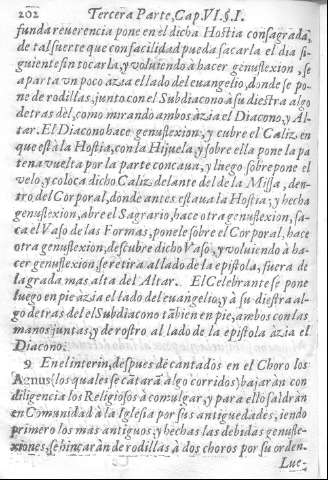 202 Tercera Parte, Cap. VI. §. I.
funda reuerencia pone en el dicha Hostia consagrada,
de tal suerte que con facilidad pueda sacarla el dia si-
guiente sin tocarla, y voluiendo à hacer genuflexion, se
aparta vn poco àzia el lado del euangelio, donde se po-
ne de rodillas, junto con el Subdiacono à su diestra algo
detras dèl, como mirando ambos àzia el Diacono, y Al-
tar. El Diacono hace genuflexion, y cubre el Caliz, en
que està la Hostia, con la Hijuela, y sobre ella pone la pa
tena vuelta por la parte concaua, y luego sobrepone el
velo, y coloca dicho Caliz delante del de la Missa, den-
tro del Corporal, donde antes estaua la Hostia; y hecha
genuflexion, abre el Sagrario, hace otra genuflexion, sa-
ca el Vaso de las Formas, ponele sobre el Corporal, hace
otra genuflexion, descubre dicho Vaso, y voluiendo à ha-
cer genuflexion, se retira al lado de la epistola, fuera de
la grada mas alta del Altar. El Celebrante se pone
luego en pie àzia el lado del euangelio, y à su diestra al-
go detras de el el Subdiacono tābien en pie, ambos con las
manos juntas, y de rostro al lado de la epistola àzia el
Diacono.
9 En el interin, despues de cantados en el Choro los
Agnus (los quales se cātarā algo corridos) bajaràn con
diligencia los Religiosos à comulgar, y para ello saldràn
en Comunidad à la Iglesia por sus antiguedades, iendo
primero los mas antiguos, y hechas las debidas genufle-
xiones, se hincaràn de rodillas à dos choros por su orden.
Lue-